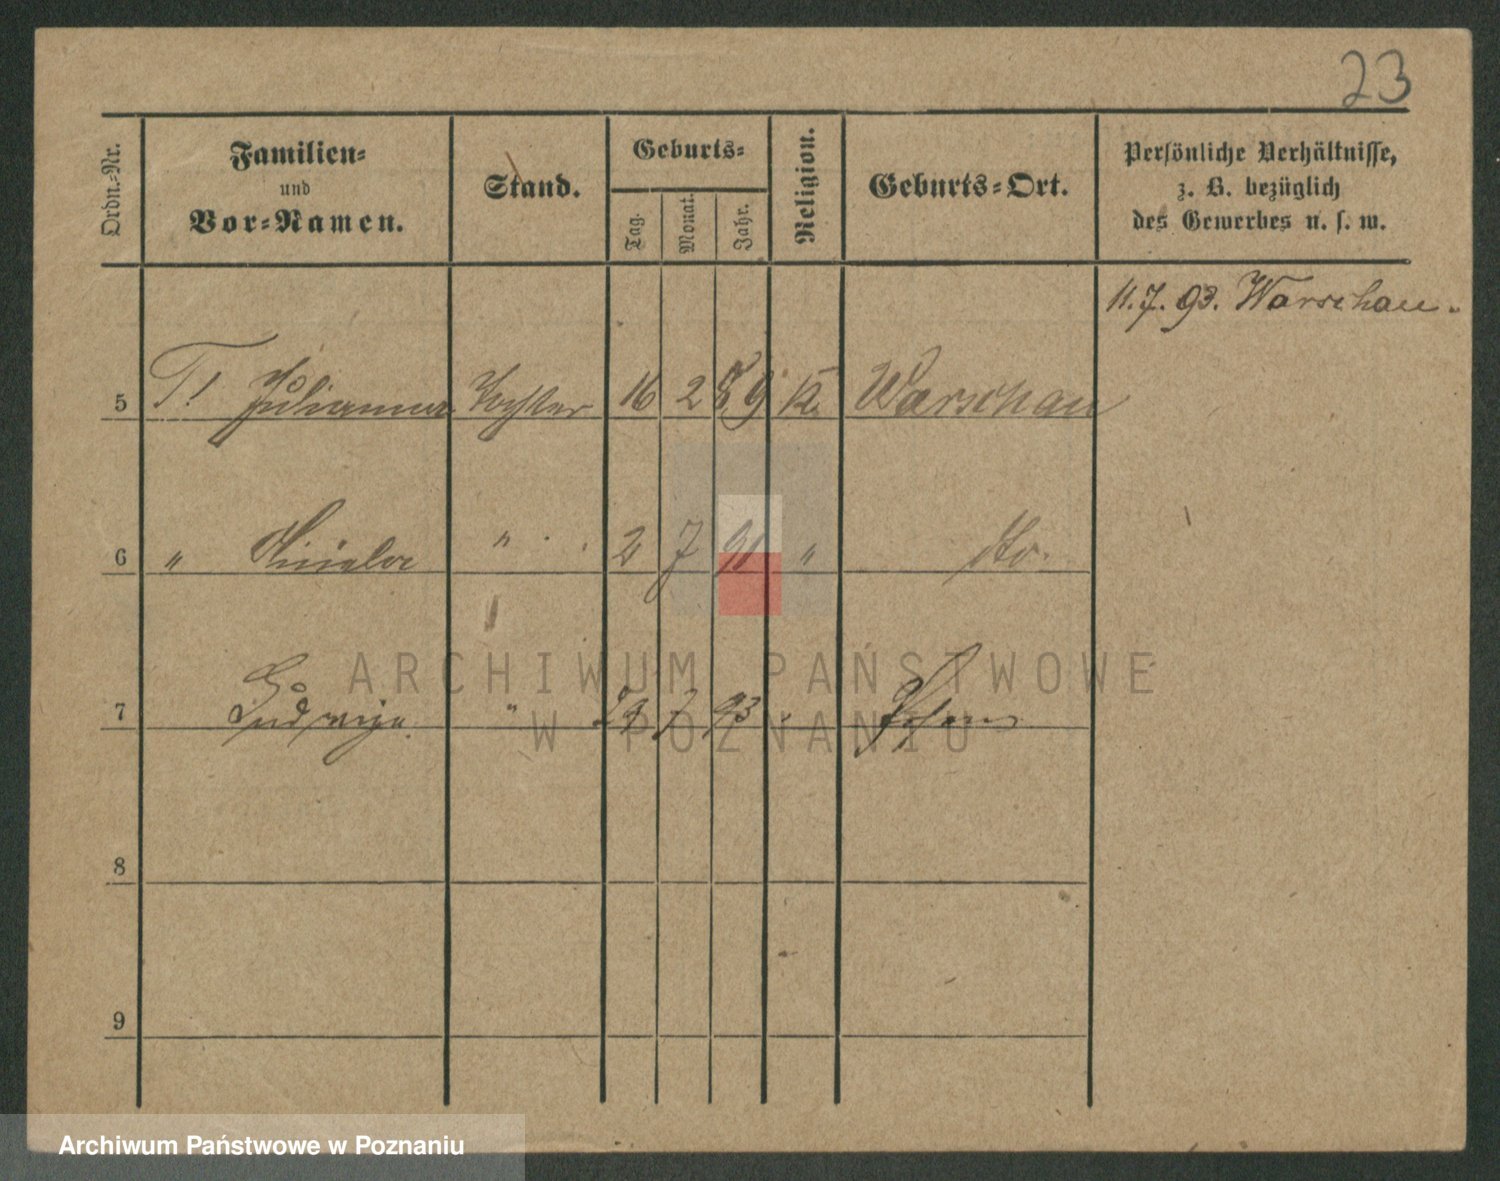 23
Ordn.-Nr.
Familien-
und
Vor-Namen.
Stand.
Geburts-
Tag.
Monat.
Jahr.
Religion.
Geburts-Ort.
Persönliche Verhältnisse,
z. B. bezüglich
des Gewerbes u. s. w.
11. 7. 93. Warschau.
5 T! Julianna Tochter 16 2 89 K. Warschau
6 " " 2 7 91 " do.
7 Hedwiga " 7 93 Posen
8
9
ARCHIWUM PAŃSTWOWE
W POZNANIU
Archiwum Państwowe w Poznaniu